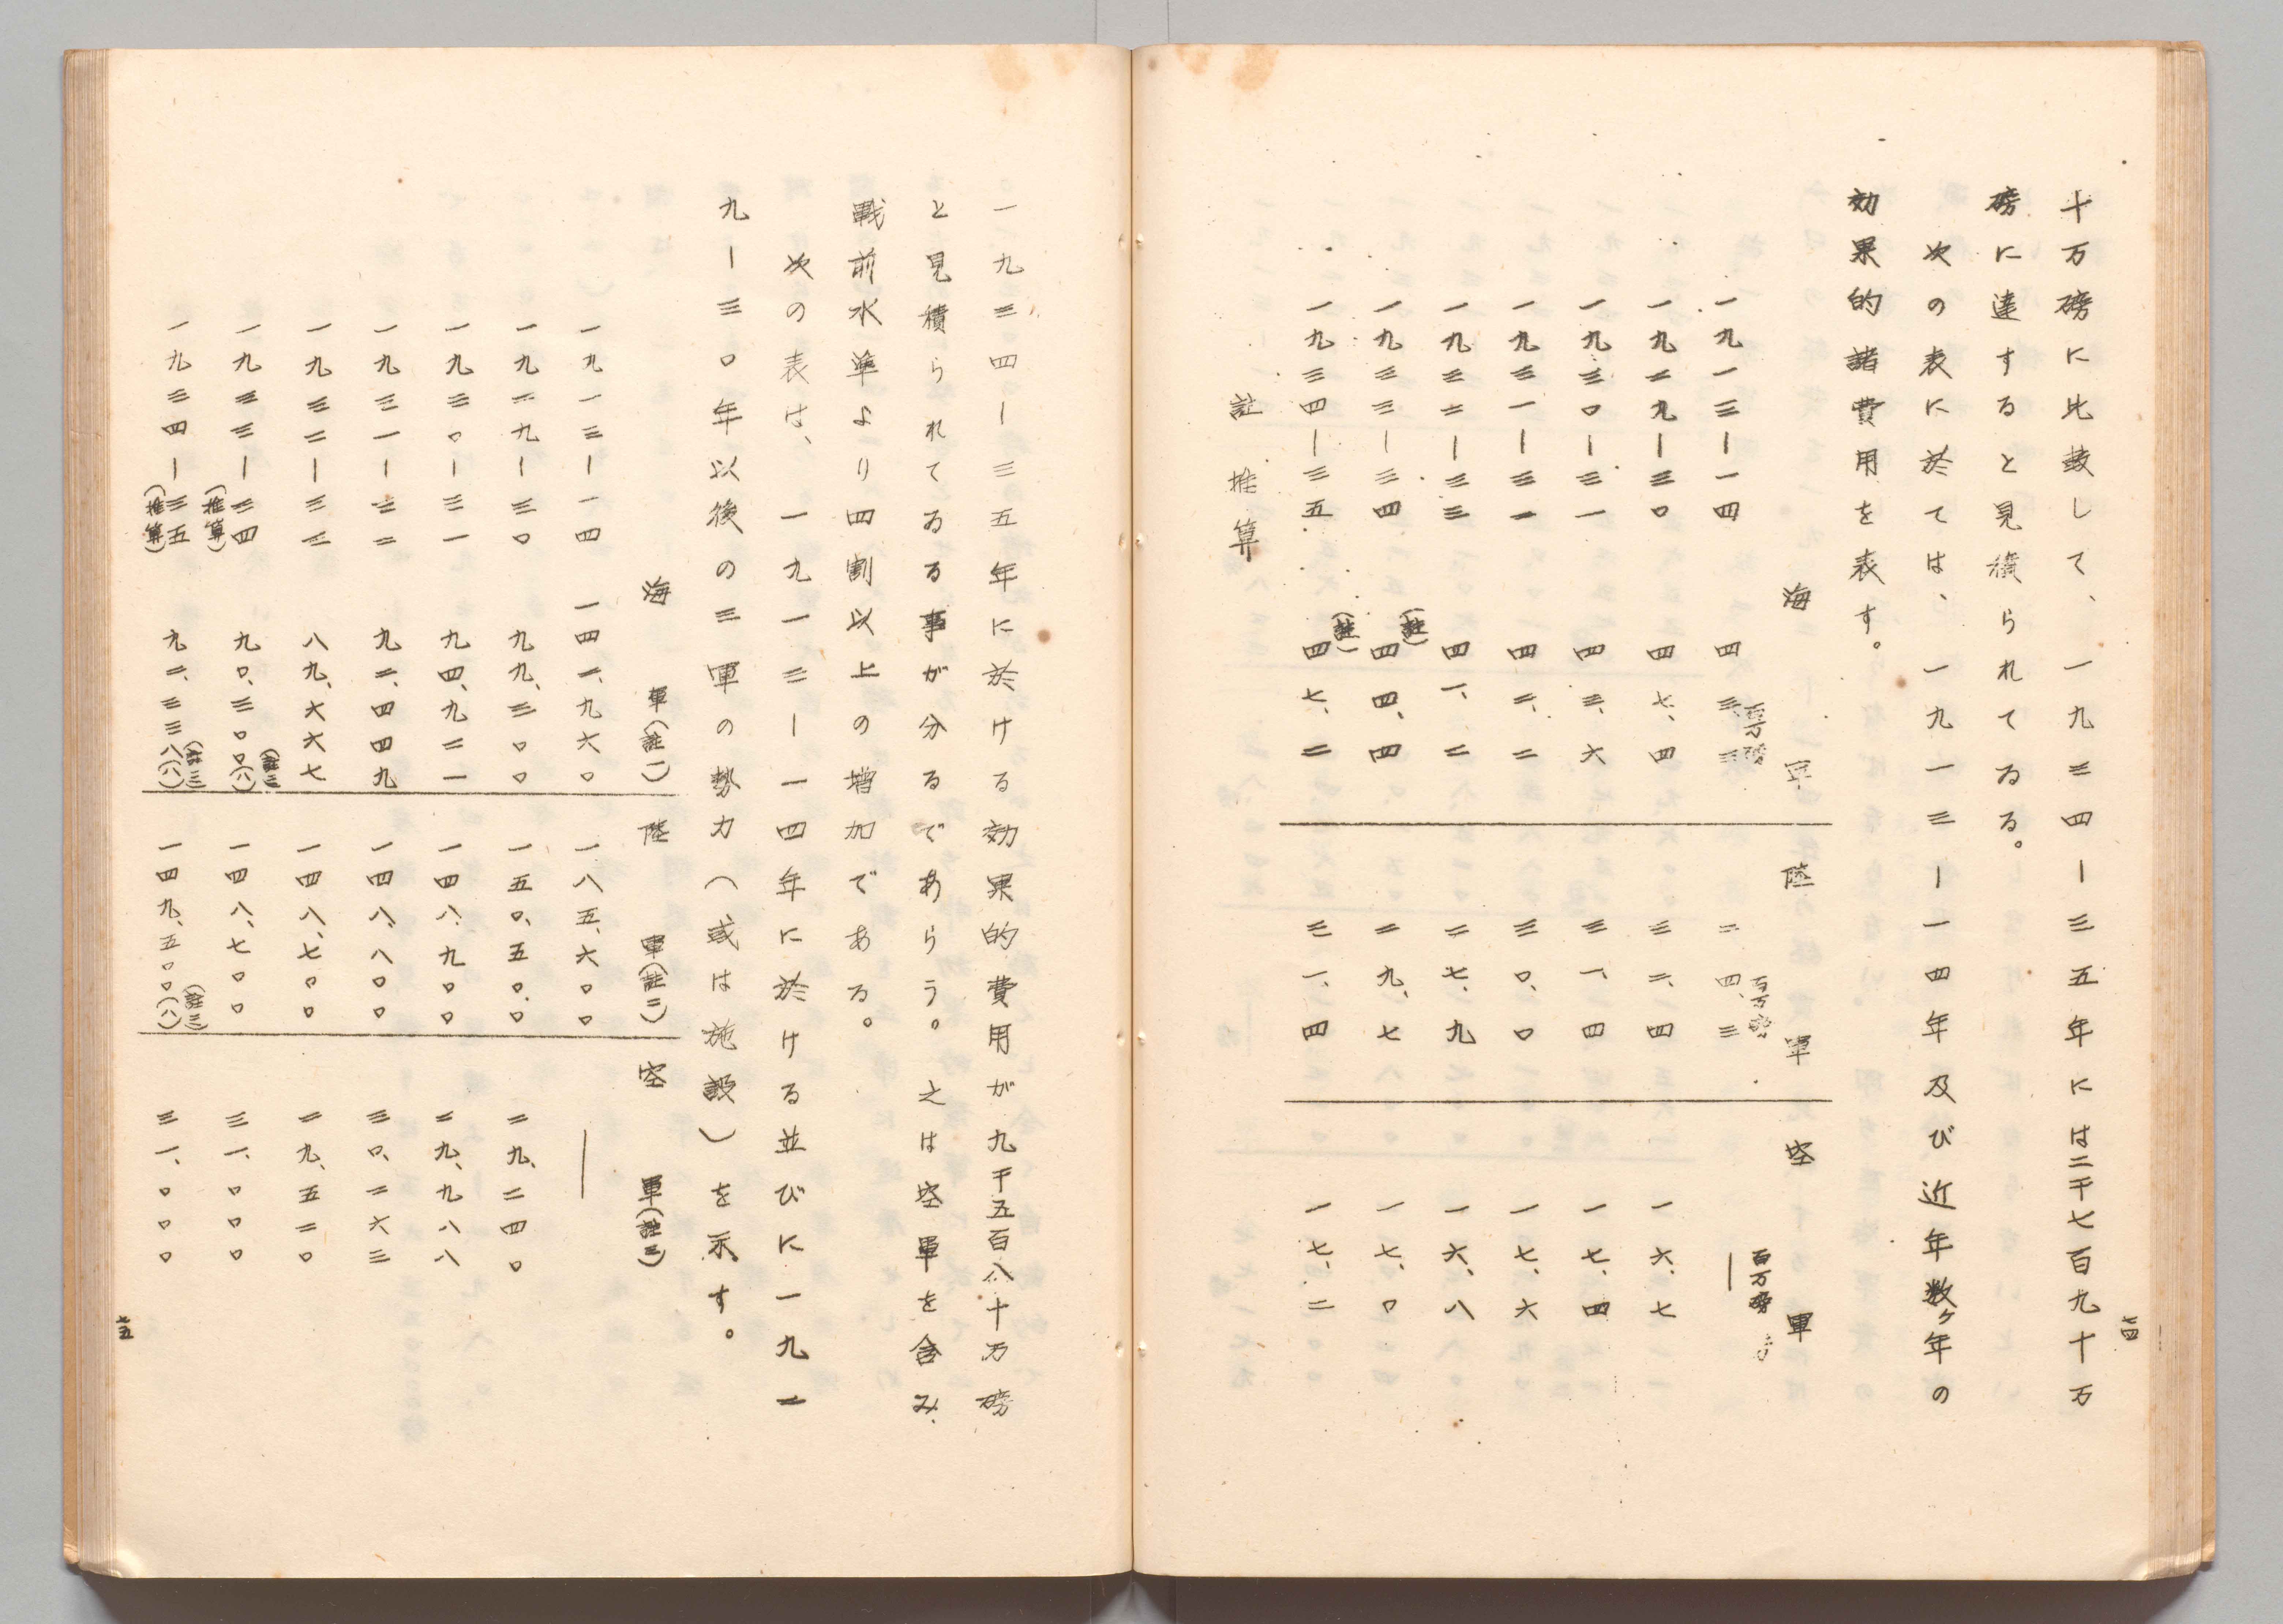 七四
十万磅に比較して、一九三四ー三五年には二千七百九十万
磅に達すると見積られてゐる。
次の表に於ては、一九一三ー一四年及び近年数ケ年の
効果的諸費用を表す。
海軍 陸軍 空軍
百万磅 百万磅 百万磅
一九一三ー一四 四三、三 二四、三 ー
一九二九ー三〇 四七、四 三二、四 一六、七
一九三〇ー三一 四三、六 三一、四 一七、四
一九三一ー三二 四二、二 三〇、〇 一七、六
一九三二ー三三 四一、二 二七、九 一六、八
一九三三ー三四 (註)四四、四 二九、七 一七、〇
一九三四ー三五 (註)四七、二 三一、四 一七、二
註 推算
一九三四ー三五年に於ける効果的費用が九千五百八十万磅
と見積られてゐる事が分るであらう。之は空軍を含み、
戰前水準より四割以上の増加である。
次の表は、一九一三ー一四年に於ける並びに一九二
九ー三〇年以後の三軍の勢力(或は施設)を示す。
海軍(註一) 陸軍(註二) 空軍(註三)
一九一三ー一四 一四一、九六〇 一八五、六〇〇 ー
一九二九ー三〇 九九、三〇〇 一五〇、五〇〇 二九、二四〇
一九三〇ー三一 九四、九二一 一四八、九〇〇 二九、九八八
一九三一ー三二 九二、四四九 一四八、八〇〇 三〇、二六三
一九三二ー三三 八九、六六七 一四八、七〇〇 二九、五二〇
一九三三ー三四(推算) 九〇、三〇〇(八)(註三) 一四八、七〇〇 三一、〇〇〇
一九三四ー三五(推算) 九二、三三八(八)(註三) 一四九、五〇〇(八)(註三) 三一、〇〇〇
七五